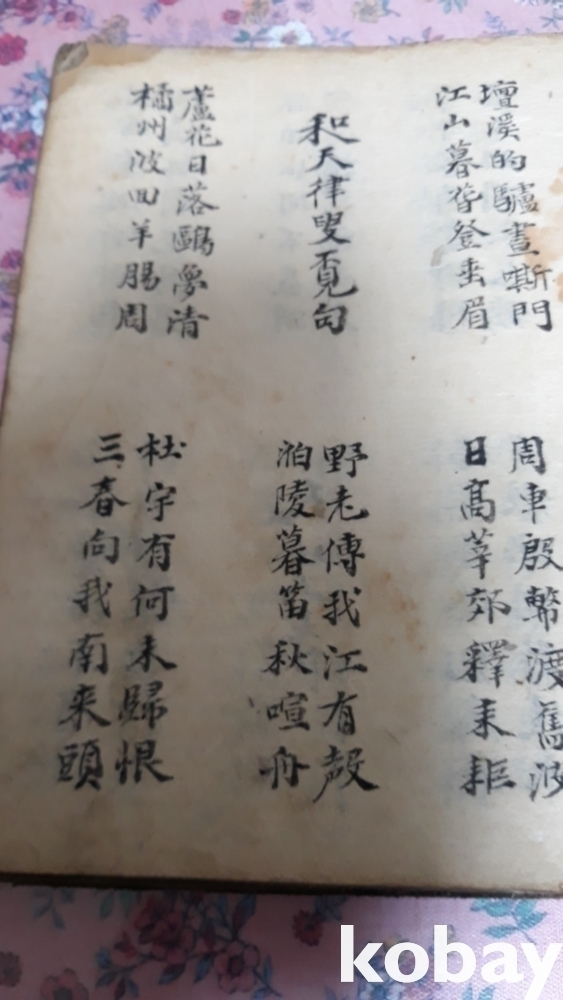 壇溪的驢晝嘶門
江山暮登垂眉
周車殷幣渡舊波
日高莘郊釋耒耟
和天律叟覔句
野老傳我江有聲
泊陵暮笛秋喧舟
蘆花日落鷗夢清
橘州波回羊腸周
杜宇有何未歸恨
三春向我南來頭
kobay